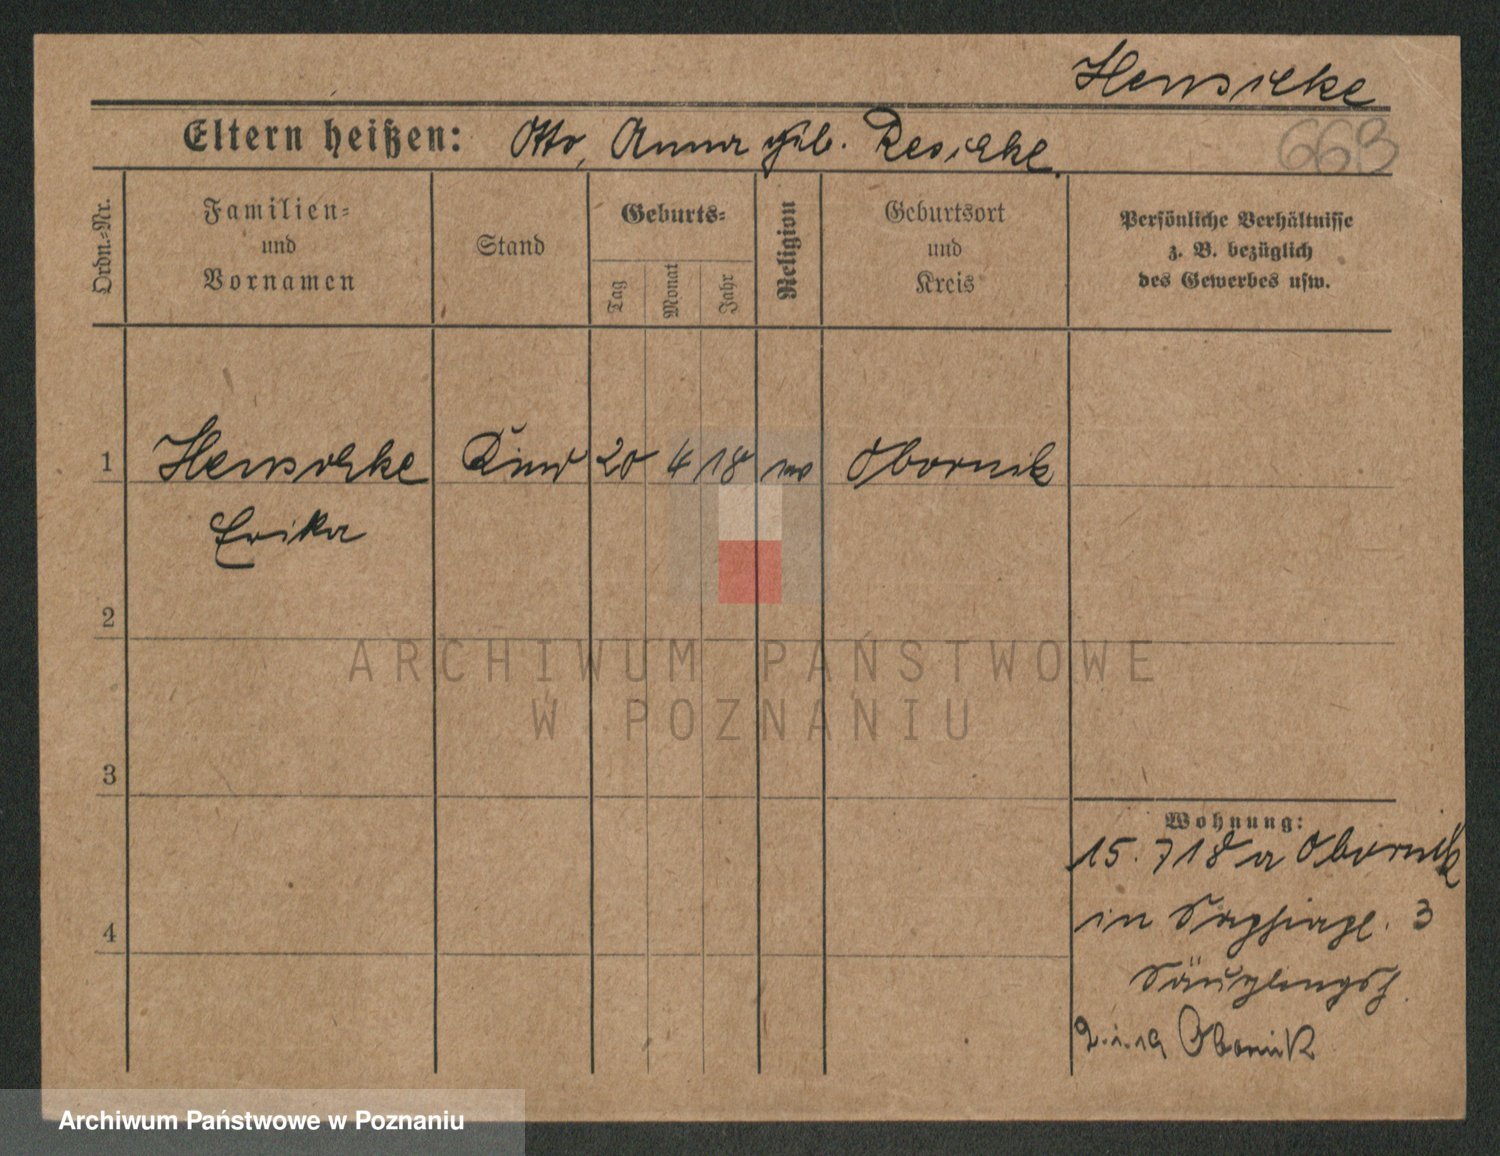 Henschke
Eltern heißen: Otto, Anna geb. Reschke.
663
Ordn.-Nr.
Familien-
und
Vornamen
Stand
Geburts-
Tag
Monat
Jahr
Religion
Geburtsort
und
Kreis
Persönliche Verhältnisse
z. B. bezüglich
des Gewerbes usw.
1 Henschke Kind 20 4 18 Obornik
Erika
2
3
4
Wohnung:
15. 7 18 a Obornik
in 3
Säuglingsh.
2.1.19 Obornik
ARCHIWUM PAŃSTWOWE
W POZNANIU
Archiwum Państwowe w Poznaniu